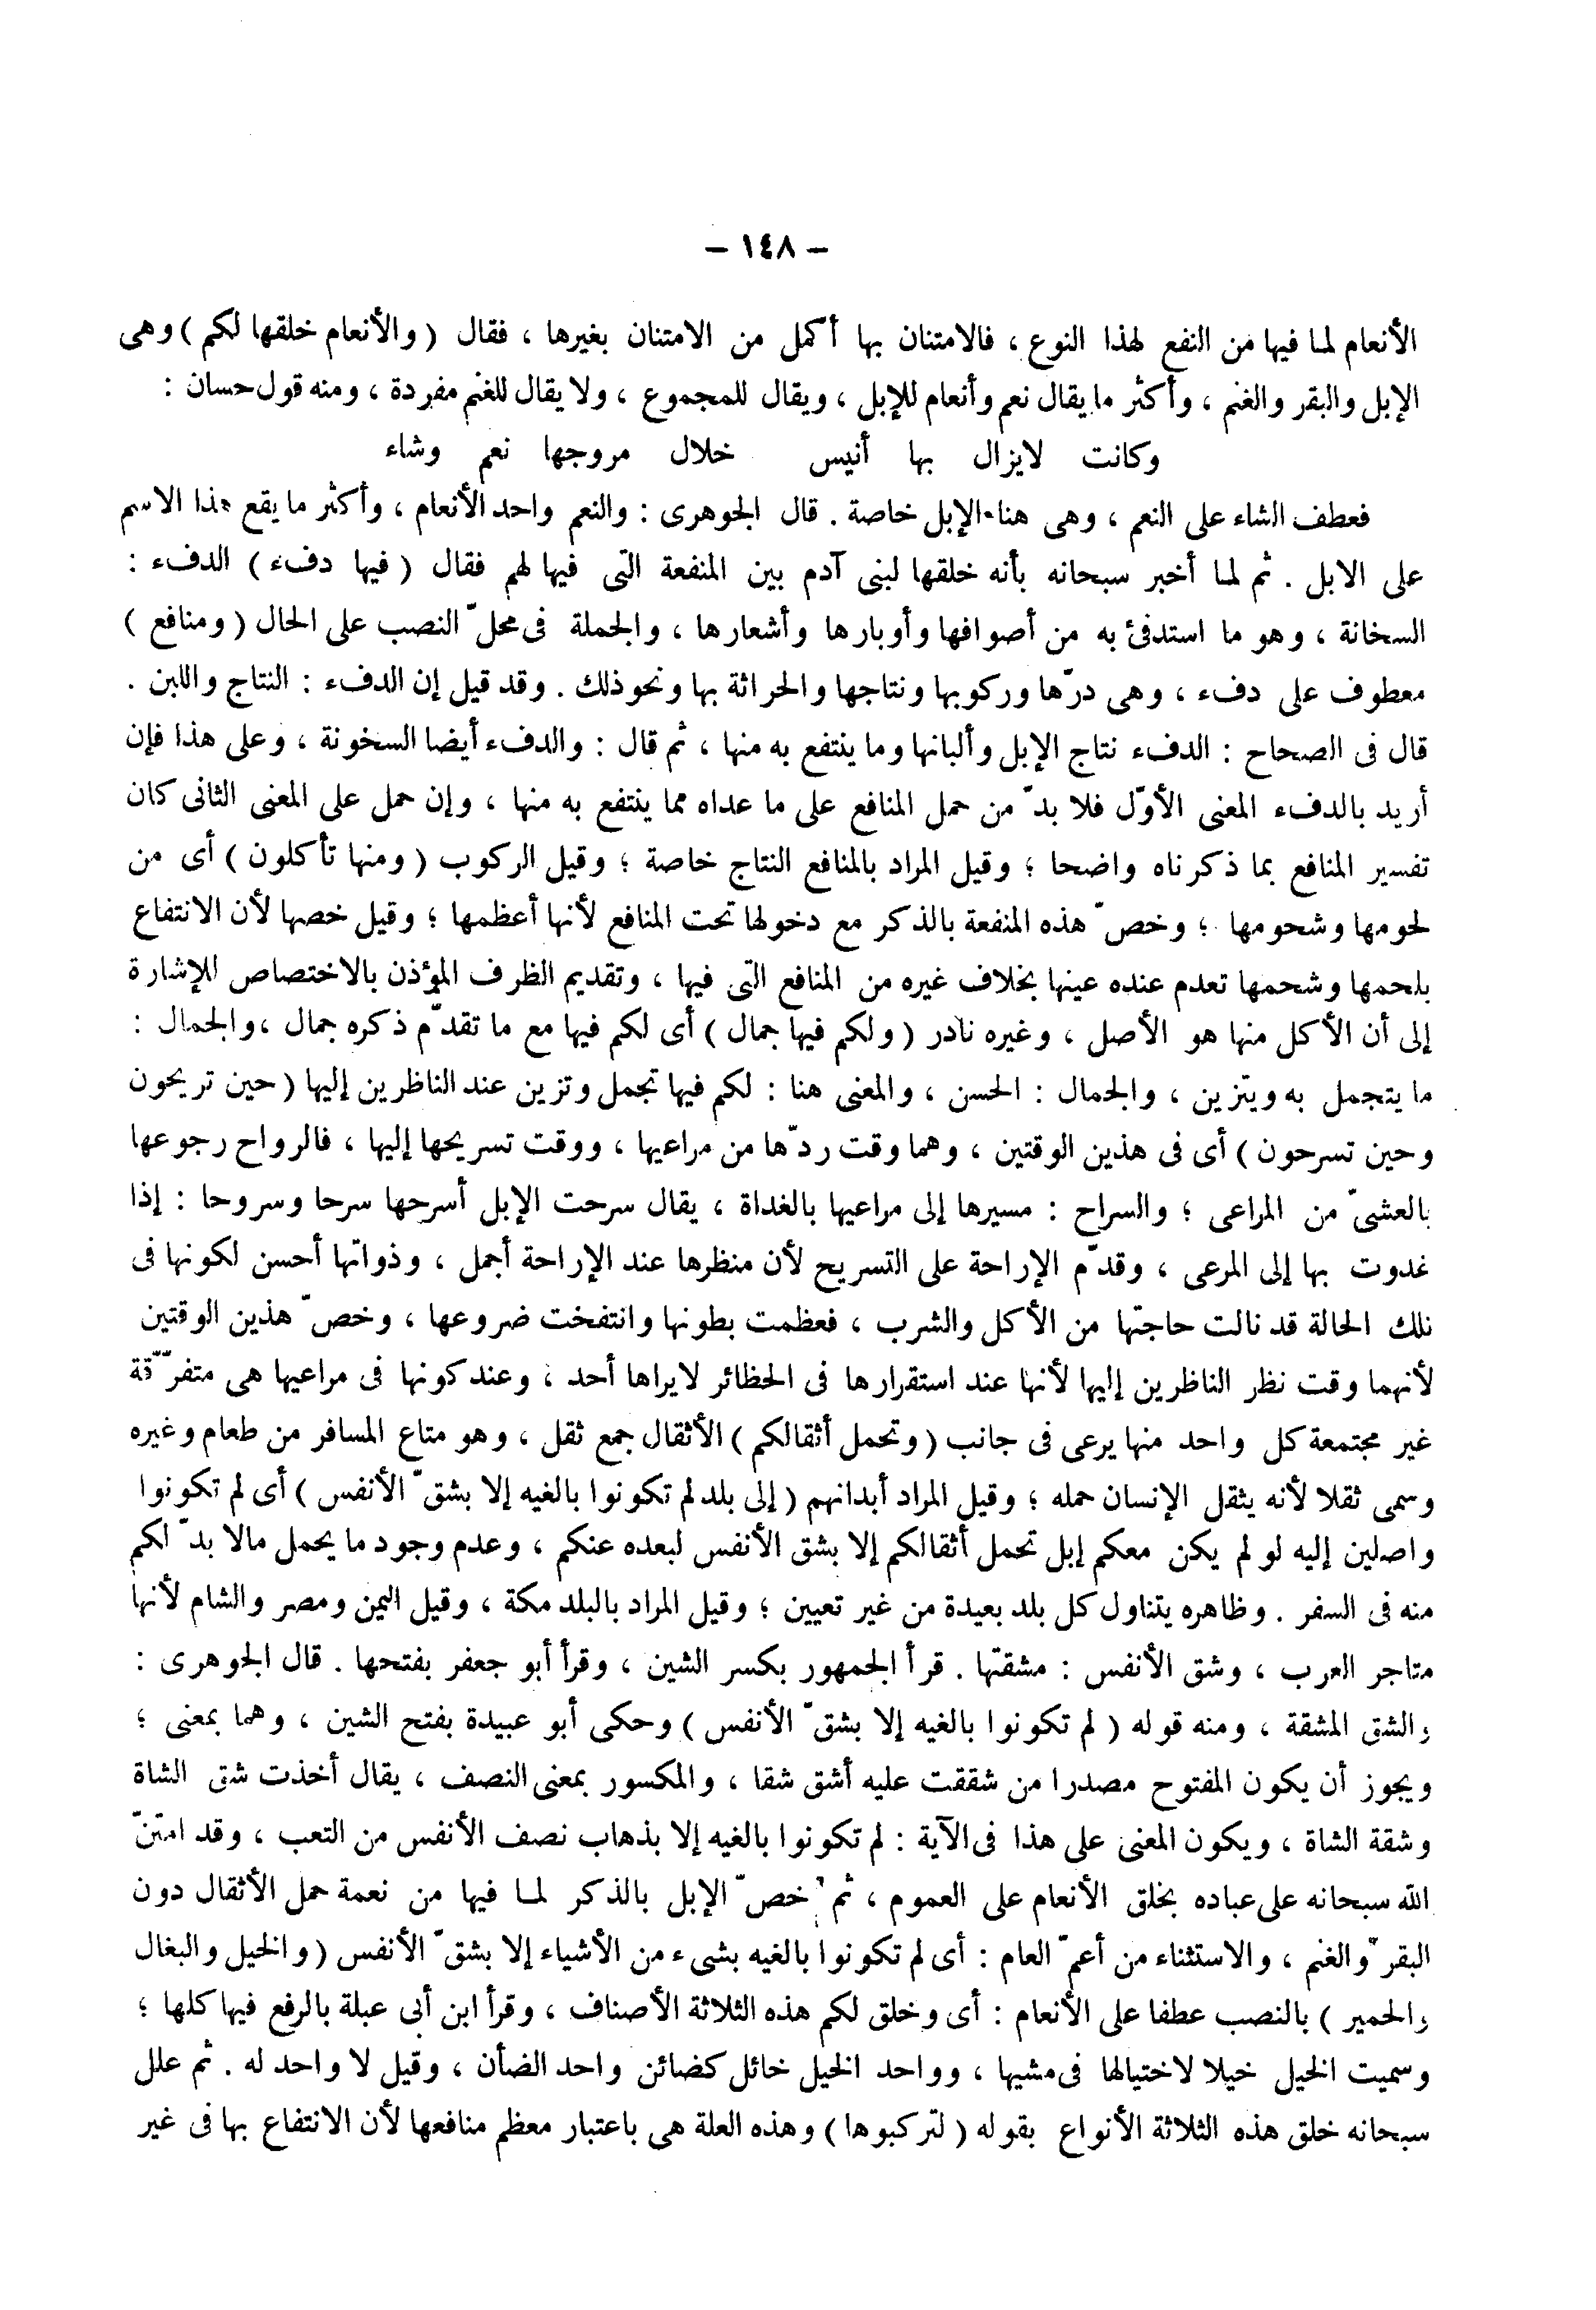 — ١٤٨ —
الأنعام لما فيها من النفع لهذا النوع ، فالامتنان بها أكمل من الامتنان بغيرها ، فقال ( والأنعام خلقها لكم ) وهى
الإبل والبقر والغنم ، وأكثر ما يقال نعم وأنعام للإبل ، ويقال للمجموع ، ولا يقال للغنم مفردة ، ومنه قول حسان :
وكانت لايزال بها أنيس خلال مروجها نعم وشاء
فعطف الشاء على النعم ، وهى هنا الإبل خاصة . قال الجوهرى : والنعم واحد الأنعام ، وأكثر ما يقع هذا الاسم
على الابل . ثم لما أخبر سبحانه بأنه خلقها لبنى آدم بين المنفعة التى فيها لهم فقال ( فيها دفء ) الدفء :
السخانة ، وهو ما استدفئ به من أصوافها وأوبارها وأشعارها ، والجملة فى محلّ النصب على الحال ( ومنافع )
معطوف على دفء ، وهى درّها وركوبها ونتاجها والحراثة بها ونحو ذلك . وقد قيل إن الدفء : النتاج واللبن .
قال فى الصحاح : الدفء نتاج الإبل وألبانها وما ينتفع به منها ، ثم قال : والدفء أيضا السخونة ، وعلى هذا فإن
أريد بالدفء المعنى الأوّل فلا بدّ من حمل المنافع على ما عداه مما ينتفع به منها ، وإن حمل على المعنى الثانى كان
تفسير المنافع بما ذكرناه واضحا ؛ وقيل المراد بالمنافع النتاج خاصة ؛ وقيل الركوب ( ومنها تأكلون ) أى من
لحومها وشحومها ؛ وخصّ هذه المنفعة بالذكر مع دخولها تحت المنافع لأنها أعظمها ؛ وقيل خصها لأن الانتفاع
بلحمها وشحمها تعدم عنده عينها بخلاف غيره من المنافع التى فيها ، وتقديم الظرف المؤذن بالاختصاص للإشارة
إلى أن الأكل منها هو الأصل ، وغيره نادر ( ولكم فيها جمال ) أى لكم فيها مع ما تقدّم ذكره جمال ، والجمال :
ما يتجمل به ويتزين ، والجمال : الحسن ، والمعنى هنا : لكم فيها تجمل وتزين عند الناظرين إليها ( حين تريحون
وحين تسرحون ) أى فى هذين الوقتين ، وهما وقت ردّها من مراعيها ، ووقت تسريحها إليها ، فالرواح رجوعها
بالعشىّ من المراعى ؛ والسراح : مسيرها إلى مراعيها بالغداة ، يقال سرحت الإبل أسرحها سرحا وسروحا : إذا
غدوت بها إلى المرعى ، وقدّم الإراحة على التسريح لأن منظرها عند الإراحة أجمل ، وذواتها أحسن لكونها فى
تلك الحالة قد نالت حاجتها من الأكل والشرب ، فعظمت بطونها وانتفخت ضروعها ، وخصّ هذين الوقتين
لأنهما وقت نظر الناظرين إليها لأنها عند استقرارها فى الحظائر لايراها أحد ، وعند كونها فى مراعيها هى متفرّقة
غير مجتمعة كل واحد منها يرعى فى جانب ( وتحمل أثقالكم ) الأثقال جمع ثقل ، وهو متاع المسافر من طعام وغيره
وسمى ثقلا لأنه يثقل الإنسان حمله ؛ وقيل المراد أبدانهم ( إلى بلد لم تكونوا بالغيه إلا بشقّ الأنفس ) أى لم تكونوا
واصلين إليه لو لم يكن معكم إبل تحمل أثقالكم إلا بشق الأنفس لبعده عنكم ، وعدم وجود ما يحمل مالا بدّ لكم
منه فى السفر . وظاهره يتناول كل بلد بعيدة من غير تعيين ؛ وقيل المراد بالبلد مكة ، وقيل اليمن ومصر والشام لأنها
متاجر العرب ، وشق الأنفس : مشقتها . قرأ الجمهور بكسر الشين ، وقرأ أبو جعفر بفتحها . قال الجوهرى :
والشق المشقة ، ومنه قوله ( لم تكونوا بالغيه إلا بشقّ الأنفس ) وحكى أبو عبيدة بفتح الشين ، وهما بمعنى ؛
ويجوز أن يكون المفتوح مصدرا من شققت عليه أشق شقا ، والمكسور بمعنى النصف ، يقال أخذت شق الشاة
وشقة الشاة ، ويكون المعنى على هذا فى الآية : لم تكونوا بالغيه إلا بذهاب نصف الأنفس من التعب ، وقد امتنّ
الله سبحانه على عباده بخلق الأنعام على العموم ، ثم خصّ الإبل بالذكر لما فيها من نعمة حمل الأثقال دون
البقر والغنم ، والاستثناء من أعمّ العام : أى لم تكونوا بالغيه بشىء من الأشياء إلا بشقّ الأنفس ( والخيل والبغال
والحمير ) بالنصب عطفا على الأنعام : أى وخلق لكم هذه الثلاثة الأصناف ، وقرأ ابن أبى عبلة بالرفع فيها كلها ؛
وسميت الخيل خيلا لاختيالها فى مشيها ، وواحد الخيل خائل كضائن واحد الضأن ، وقيل لا واحد له . ثم علل
سبحانه خلق هذه الثلاثة الأنواع بقوله ( لتركبوها ) وهذه العلة هى باعتبار معظم منافعها لأن الانتفاع بها فى غير